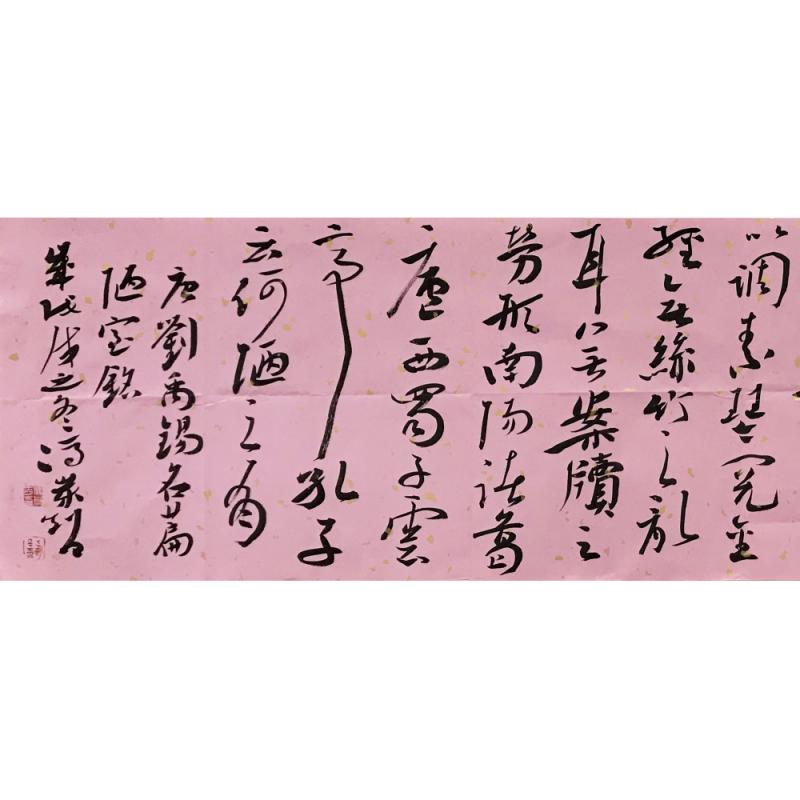 以調素琴閱金
經無絲竹之亂
耳無案牘之
勞形南陽諸葛
廬西蜀子雲
亭孔子
云何陋之有
唐劉禹錫名篇
陋室銘
歲次戊戌之冬馮